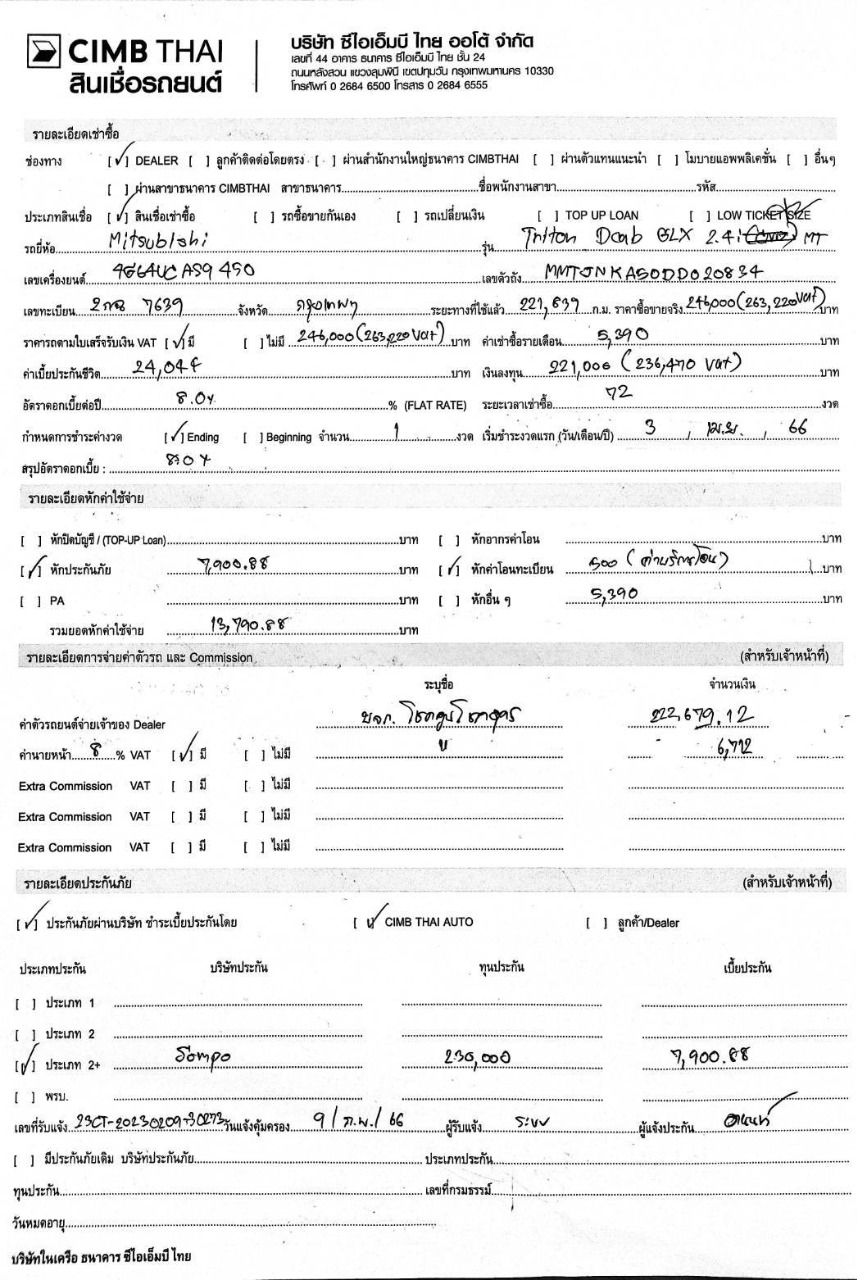 CIMB THAI
สินเชื่อรถยนต์
บริษัท ซีไอเอ็มบี ไทย ออโต้ จำกัด
เลขที่ 44 อาคาร ธนาคาร ซีไอเอ็มบี ไทย ชั้น 24
ถนนหลังสวน แขวงลุมพินี เขตปทุมวัน กรุงเทพมหานคร 10330
โทรศัพท์ 0 2684 6500 โทรสาร 0 2684 6555
รายละเอียดเช่าซื้อ
ช่องทาง [✓] DEALER [ ] ลูกค้าติดต่อโดยตรง [ ] ผ่านสำนักงานใหญ่ธนาคาร CIMBTHAI [ ] ผ่านตัวแทนแนะนำ [ ] โมบายแอพพลิเคชั่น [ ] อื่นๆ
[ ] ผ่านสาขาธนาคาร CIMBTHAI สาขาธนาคาร ชื่อพนักงานสาขา รหัส
ประเภทสินเชื่อ [✓] สินเชื่อเช่าซื้อ [ ] รถซื้อขายกันเอง [ ] รถเปลี่ยนเงิน [ ] TOP UP LOAN [ ] LOW TICKET SIZE
รถยี่ห้อ Mitsubishi รุ่น Triton Dcab GLX 2.4i MT
เลขเครื่องยนต์ 4G64UCAS9450 เลขตัวถัง MMTJNKA50DD020834
เลขทะเบียน 7639 จังหวัด กรุงเทพฯ ระยะทางที่ใช้แล้ว 221,839 ก.ม. ราคาซื้อขายจริง 246,000 (263,220 Vat) บาท
ราคารถตามใบเสร็จรับเงิน VAT [✓] มี [ ] ไม่มี 246,000 (263,220 Vat) บาท ค่าเช่าซื้อรายเดือน 5,390 บาท
ค่าเบี้ยประกันชีวิต บาท เงินลงทุน 221,000 (236,470 Vat) บาท
อัตราดอกเบี้ยต่อปี % (FLAT RATE) ระยะเวลาเช่าซื้อ 72 งวด
กำหนดการชำระค่างวด [✓] Ending [ ] Beginning จำนวน 1 งวด เริ่มชำระงวดแรก (วัน/เดือน/ปี) 3 , เม.ย. , 66
สรุปอัตราดอกเบี้ย :
รายละเอียดหักค่าใช้จ่าย
[ ] หักปิดบัญชี / (TOP-UP Loan) บาท [ ] หักอากรค่าโอน บาท
[✓] หักประกันภัย 7,900.88 บาท [✓] หักค่าโอนทะเบียน 500 (ค่าบริการโอน) บาท
[ ] PA บาท [ ] หักอื่น ๆ 5,390 บาท
รวมยอดหักค่าใช้จ่าย 13,790.88 บาท
รายละเอียดการจ่ายค่าตัวรถ และ Commission (สำหรับเจ้าหน้าที่)
ระบุชื่อ จำนวนเงิน
ค่าตัวรถยนต์จ่ายเจ้าของ Dealer 222,679.12
ค่านายหน้า 8 % VAT [✓] มี [ ] ไม่มี 6,712
Extra Commission VAT [ ] มี [ ] ไม่มี
Extra Commission VAT [ ] มี [ ] ไม่มี
Extra Commission VAT [ ] มี [ ] ไม่มี
รายละเอียดประกันภัย (สำหรับเจ้าหน้าที่)
[✓] ประกันภัยผ่านบริษัท ชำระเบี้ยประกันโดย [✓] CIMB THAI AUTO [ ] ลูกค้า/Dealer
ประเภทประกัน บริษัทประกัน ทุนประกัน เบี้ยประกัน
[ ] ประเภท 1
[ ] ประเภท 2
[✓] ประเภท 2+ Sompo 230,000 7,900.88
[ ] พรบ.
เลขที่รับแจ้ง 23CT-20230209-30273 วันแจ้งคุ้มครอง 9 / ก.พ. / 66 ผู้รับแจ้ง ระบบ ผู้แจ้งประกัน
[ ] มีประกันภัยเดิม บริษัทประกันภัย ประเภทประกัน
ทุนประกัน เลขที่กรมธรรม์
วันหมดอายุ
บริษัทในเครือ ธนาคาร ซีไอเอ็มบี ไทย